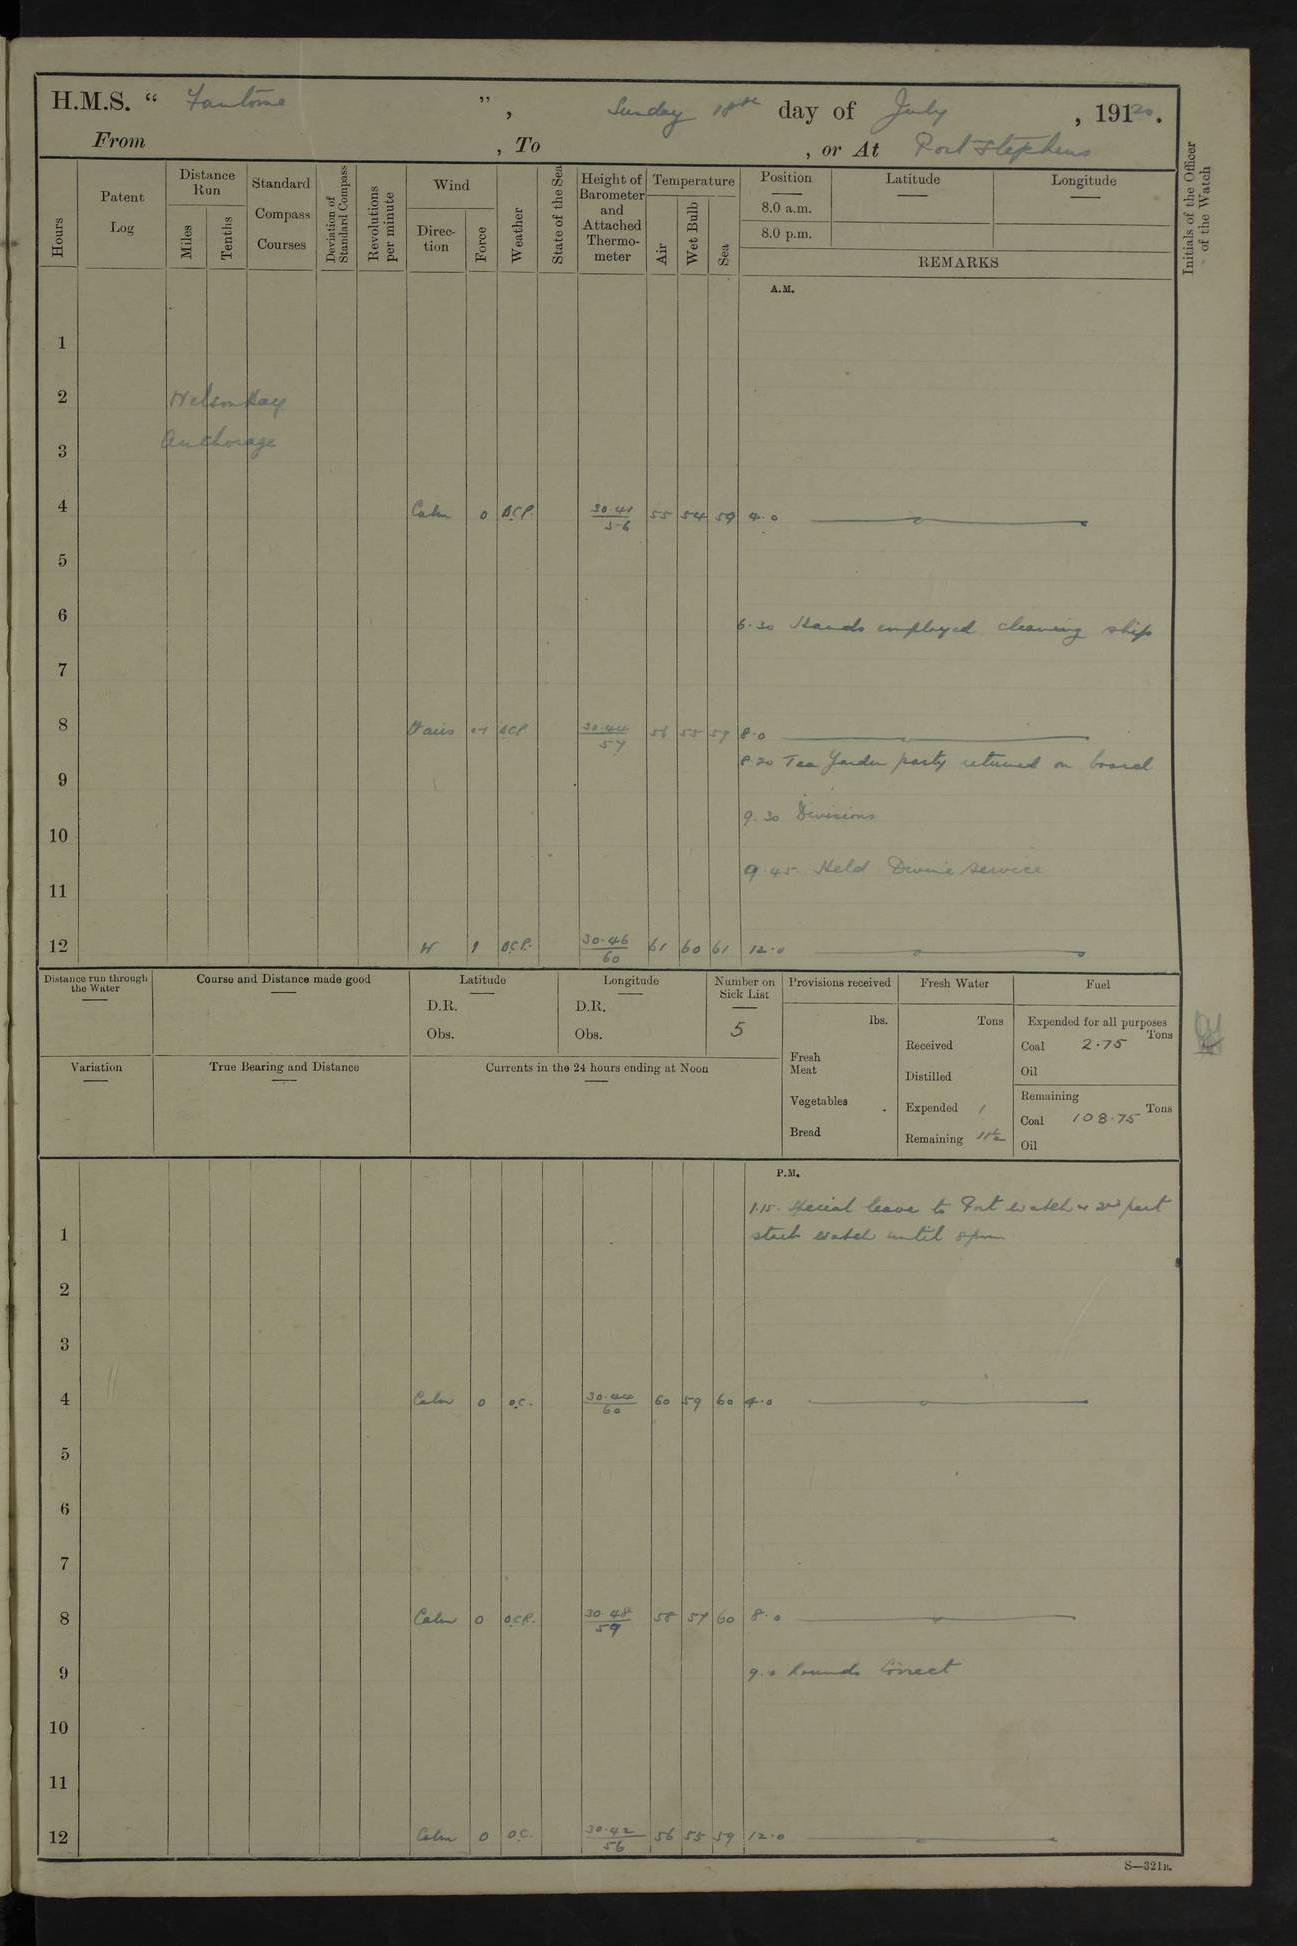 H.M.S. “ Fantome ” , Sunday 18th day of July , 19120.
From , To , or At Port Stephens
Hours
Patent Log
Distance Run
Miles
Tenths
Standard Compass Courses
Deviation of Standard Compass
Revolutions per minute
Wind
Direc-tion
Force
Weather
State of the Sea
Height of Barometer and Attached Thermo-meter
Temperature
Air
Wet Bulb
Sea
Position
8.0 a.m.
8.0 p.m.
Latitude
Longitude
REMARKS
Initials of the Officer of the Watch
A.M.
1
2 Nelson Bay
3 Anchorage
4 Calm 0 B.C.P. 30.41 56 55 54 59 4.0
5
6
6.30 Hands employed cleaning ship
7
8 Vairs 0-1 BCP. 30.44 57 56 55 59 8.0
8.20 Tea Garden party returned on board
9
9.30 Divisions
10
9.45 Held Divine service
11
12 W 1 B.C.P. 30.46 60 61 60 61 12.0
Distance run through the Water
Course and Distance made good
Latitude
D.R.
Obs.
Longitude
D.R.
Obs.
Number on Sick List
5
Provisions received
lbs.
Fresh Meat
Vegetables
Bread
Fresh Water
Tons
Received
Distilled
Expended 1
Remaining 11½
Fuel
Expended for all purposes
Tons
Coal 2.75
Oil
Remaining
Tons
Coal 108.75
Oil
Variation
True Bearing and Distance
Currents in the 24 hours ending at Noon
P.M.
1.15. Special leave to Port watch & 2nd part
1 starb watch until 8pm
2
3
4 Calm 0 O.C. 30.44 60 60 59 60 4.0
5
6
7
8 Calm 0 O.C.P. 30.48 59 58 57 60 8.0
9 9.0 Rounds Correct
10
11
12 Calm 0 O.C. 30.42 56 56 55 59 12.0
S—321B.